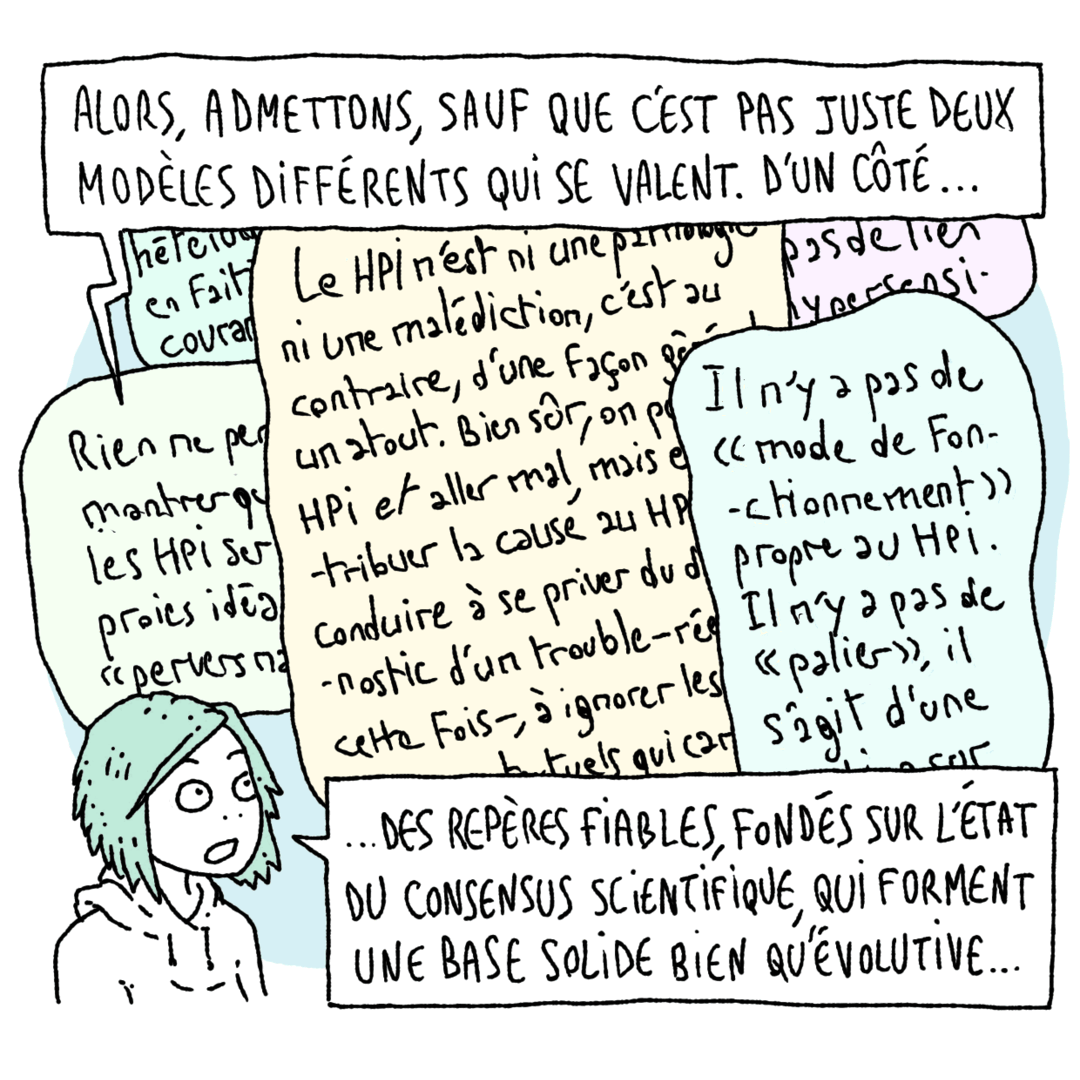 ALORS, ADMETTONS, SAUF QUE C'EST PAS JUSTE DEUX
MODÈLES DIFFÉRENTS QUI SE VALENT. D'UN CÔTÉ...
en fait
Le HPI n'est ni une
ni une malédiction, c'est au
contraire, d'une façon
un atout. Bien sûr, on
HPI et aller mal, mais
-tribuer la cause au HP
conduire à se priver du d
-nostic d'un trouble-rée
cette fois-, à ignorer les
qui
pas de lien
hypersensi-
Rien ne
montrer
les HPI
proies
«pervers
Il n'y a pas de
«mode de fon-
-ctionnement»
propre au HPI.
Il n'y a pas de
«palier», il
s'agit d'une
...DES REPÈRES FIABLES, FONDÉS SUR L'ÉTAT
DU CONSENSUS SCIENTIFIQUE, QUI FORMENT
UNE BASE SOLIDE BIEN QU'ÉVOLUTIVE...